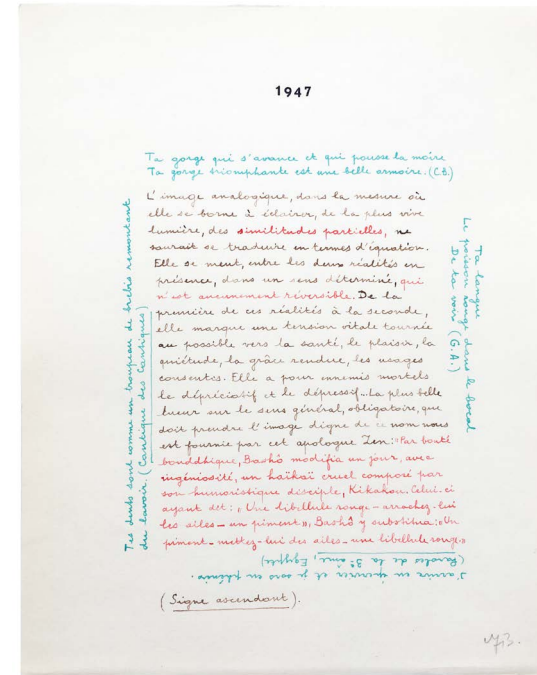 1947
Ta gorge qui s'avance et qui pousse la moire
Ta gorge triomphante est une belle armoire. (C.B.)
L'image analogique, dans la mesure où
elle se borne à éclairer, de la plus vive
lumière, des similitudes partielles, ne
saurait se traduire en termes d'équation.
Elle se meut, entre les deux réalités en
présence, dans un sens déterminé, qui
n'est aucunement réversible. De la
première de ces réalités à la seconde,
elle marque une tension vitale tournée
au possible vers la santé, le plaisir, la
quiétude, la grâce rendue, les usages
consentis. Elle a pour ennemis mortels
le dépréciatif et le dépressif... La plus belle
lueur sur le sens général, obligatoire, que
doit prendre l'image digne de ce nom nous
est fournie par cet apologue Zen: "Par bonté
bouddhique, Bashô modifia un jour, avec
ingéniosité, un haïkaï cruel composé par
son humoristique disciple, Kikakou. Celui-ci
ayant dit: « Une libellule rouge – arrachez-lui
les ailes – un piment », Bashô y substitua: « Un
piment – mettez-lui des ailes – une libellule rouge »
Ta langue
Le poisson rouge dans le bocal
De ta voix (G.A.)
J'arrive en épervier et je sors en phénix.
(Paroles de la 3e âme, Egypte)
Tes dents sont comme un troupeau de brebis remontant
du lavoir. (Cantique des Cantiques)
(Signe ascendant).